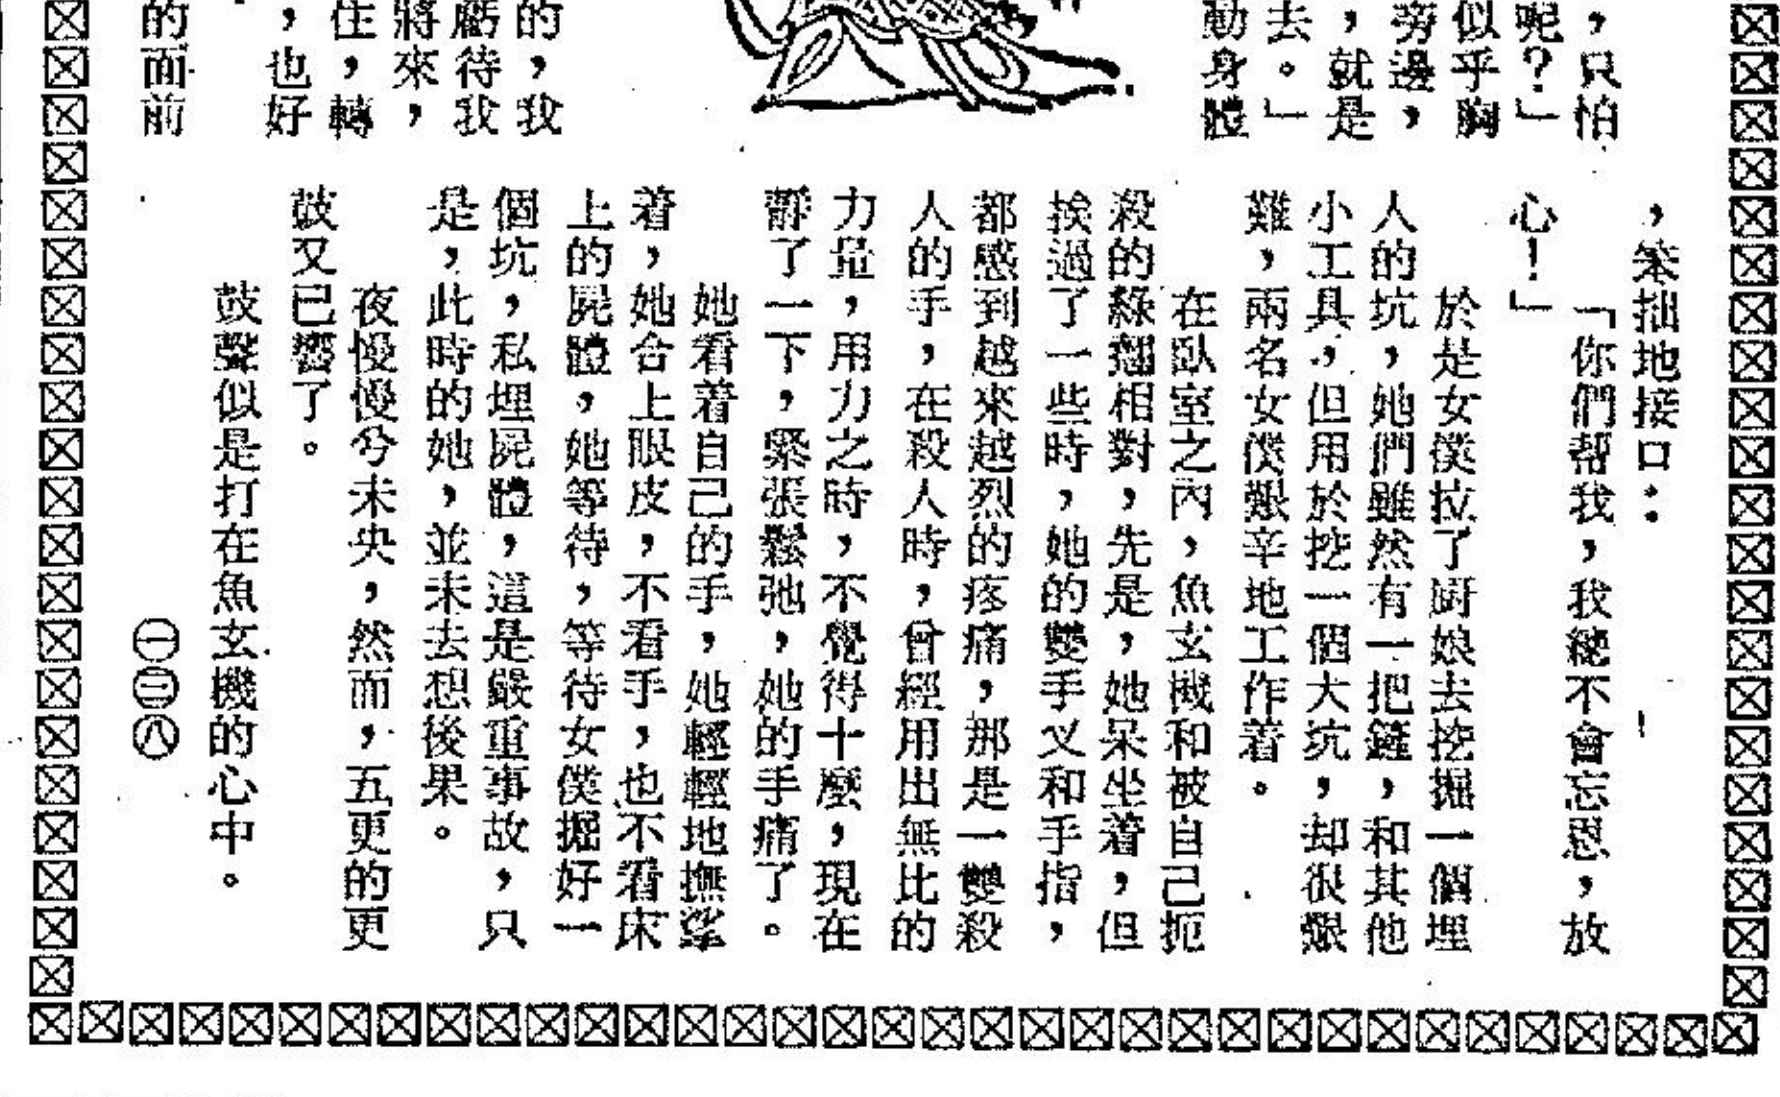 ，只怕
呢？」
似乎胸
旁邊，
，就是
去。」
動身體
的，我
虧待我
將來，
住，轉
，也好
的面前
，笨拙地接口：
「你們帮我，我總不會忘恩，放
心！」
於是女僕拉了厨娘去挖掘一個埋
人的坑，她們雖然有一把鏟，和其他
小工具，但用於挖一個大坑，却很艱
難，兩名女僕艱辛地工作着。
在臥室之內，魚玄機和被自己扼
殺的綠翹相對，先是，她呆坐着，但
挨過了一些時，她的雙手又和手指，
都感到越來越烈的疼痛，那是一雙殺
人的手，在殺人時，曾經用出無比的
力量，用力之時，不覺得十麼，現在
靜了一下，緊張鬆弛，她的手痛了。
她看着自己的手，她輕輕地撫挲
着，她合上眼皮，不看手，也不看床
上的屍體，她等待，等待女僕掘好一
個坑，私埋屍體，這是嚴重事故，只
是，此時的她，並未去想後果。
夜慢慢兮未央，然而，五更的更
鼓又已響了。
鼓聲似是打在魚玄機的心中。
㊀㊂㊇